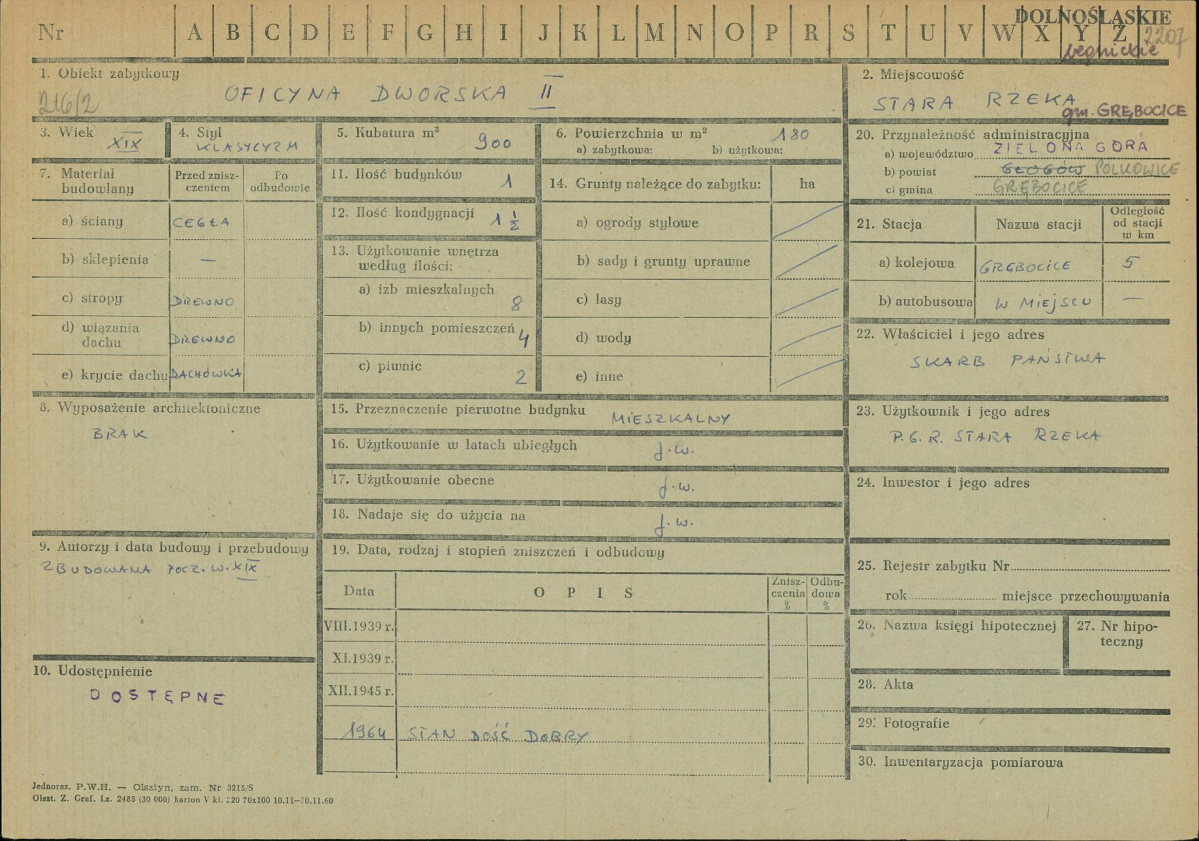 Nr A B C D E F G H I J K L M N O P R S T U V W X Y Z
DOLNOŚLĄSKIE
2207
legnickie
1. Obiekt zabytkowy
216/2
OFICYNA DWORSKA II
2. Miejscowość
STARA RZEKA
gm. GRĘBOCICE
3. Wiek
XIX
4. Styl
KLASYCYZM
5. Kubatura m³
900
6. Powierzchnia w m²
180
a) zabytkowa: b) użytkowa:
7. Materiał budowlany
Przed zniszczeniem
Po odbudowie
a) ściany CEGŁA
b) sklepienia —
c) stropy DREWNO
d) wiązania dachu DREWNO
e) krycie dachu DACHÓWKA
8. Wyposażenie architektoniczne
BRAK
9. Autorzy i data budowy i przebudowy
ZBUDOWANA POCZ. W. XIX
10. Udostępnienie
DOSTĘPNE
11. Ilość budynków
1
12. Ilość kondygnacji
1 ½
13. Użytkowanie wnętrza
według ilości:
a) izb mieszkalnych
8
b) innych pomieszczeń 4
c) piwnic
2
14. Grunty należące do zabytku: ha
a) ogrody stylowe
b) sady i grunty uprawne
c) lasy
d) wody
e) inne
15. Przeznaczenie pierwotne budynku
MIESZKALNY
16. Użytkowanie w latach ubiegłych
j.w.
17. Użytkowanie obecne
j.w.
18. Nadaje się do użycia na
j.w.
19. Data, rodzaj i stopień zniszczeń i odbudowy
Data OPIS Zniszczenia % Odbudowa %
VIII.1939 r.
XI.1939 r.
XII.1945 r.
1964 STAN DOŚĆ DOBRY
20. Przynależność administracyjna
a) województwo ZIELONA GÓRA
b) powiat GŁOGÓW POLKOWICE
c) gmina GRĘBOCICE
21. Stacja Nazwa stacji Odległość od stacji w km
a) kolejowa GRĘBOCICE 5
b) autobusowa W MIEJSCU —
22. Właściciel i jego adres
SKARB PAŃSTWA
23. Użytkownik i jego adres
P.G.R. STARA RZEKA
24. Inwestor i jego adres
25. Rejestr zabytku Nr
rok miejsce przechowywania
26. Nazwa księgi hipotecznej
27. Nr hipoteczny
28. Akta
29. Fotografie
30. Inwentaryzacja pomiarowa
Jednoraz. P.W.H. — Olsztyn, zam. Nr 3215/S
Olszt. Z. Graf. Lz. 2485 (30 000) karton V kl. 220 70x100 10.11—30.11.60